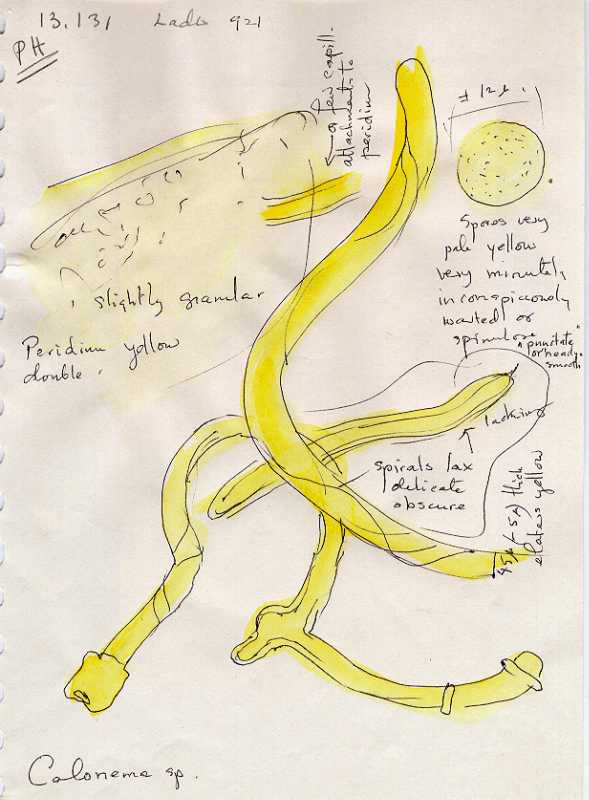 13.131 Lado 921
PH
a few capill.
attachments to
peridium
± 12 µ.
Spores very
pale yellow
very minutely
inconspicuously
warted or
spinulose
"punctate"
or nearly
smooth
slightly granular
Peridium yellow
double.
lacking
spirals lax
delicate
obscure
thick
elaters yellow
Calonema sp.